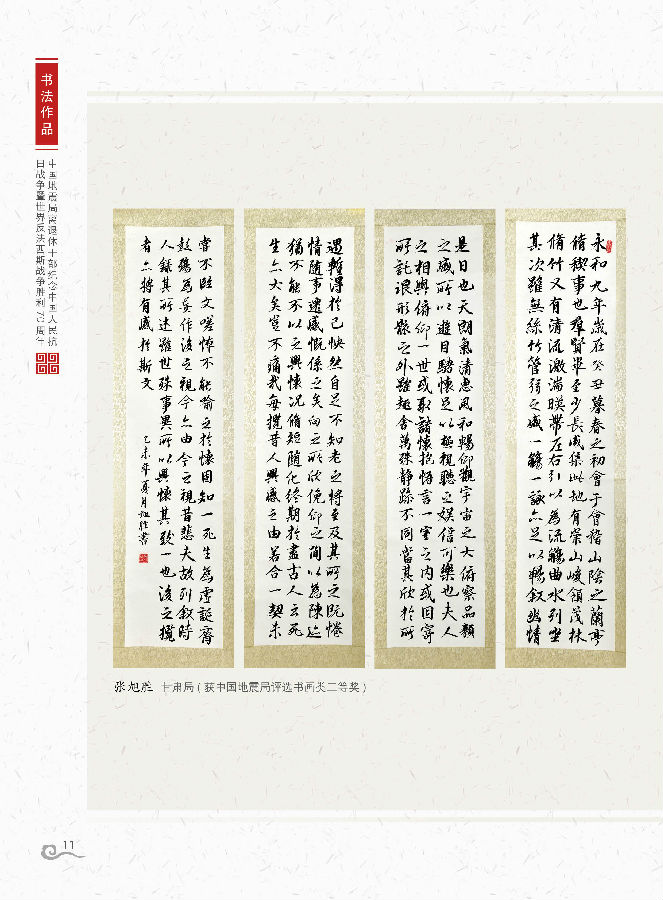 书法作品
中国地震局离退休干部纪念中国人民抗
日战争暨世界反法西斯战争胜利70周年
永和九年歲在癸丑暮春之初會于會稽山陰之蘭亭
脩稧事也群賢畢至少長咸集此地有崇山峻領茂林
脩竹又有清流激湍暎帶左右引以為流觴曲水列坐
其次雖無絲竹管弦之盛一觴一詠亦足以暢敘幽情
是日也天朗氣清惠風和暢仰觀宇宙之大俯察品類
之盛所以遊目騁懷足以極視聽之娛信可樂也夫人
之相與俯仰一世或取諸懷抱悟言一室之內或因寄
所託浪形骸之外雖趣舍萬殊静躁不同當其欣於所
遇暫得於己怏然自足不知老之將至及其所之既惓
情隨事遷感慨係之矣向之所欣俛仰之間以為陳迹
猶不能不以之興懷況脩短隨化終期於盡古人云死
生亦大矣豈不痛哉每攬昔人興感之由若合一契未
嘗不臨文嗟悼不能喻之於懷固知一死生為虛誕齊
彭殤為妄作後之視今亦由今之視昔悲夫故列敘時
人錄其所述雖世殊事異所以興懷其致一也後之攬
者亦將有感於斯文
乙未年夏月旭胜書
张旭胜 甘肃局(获中国地震局评选书画类二等奖)
11